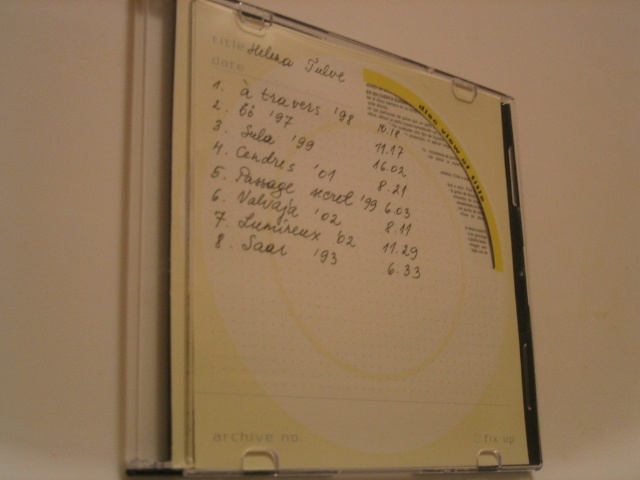 title Helena Tulve
date
disc view of title
1. à travers '98 10.18
2. öö '97 11.17
3. Sula '99 16.02
4. Cendres '01 8.21
5. Passage secret '99 6.03
6. Valvaja '02 8.11
7. Lumineux '02 11.29
8. Saar '93 6.33
archive no.
fix up